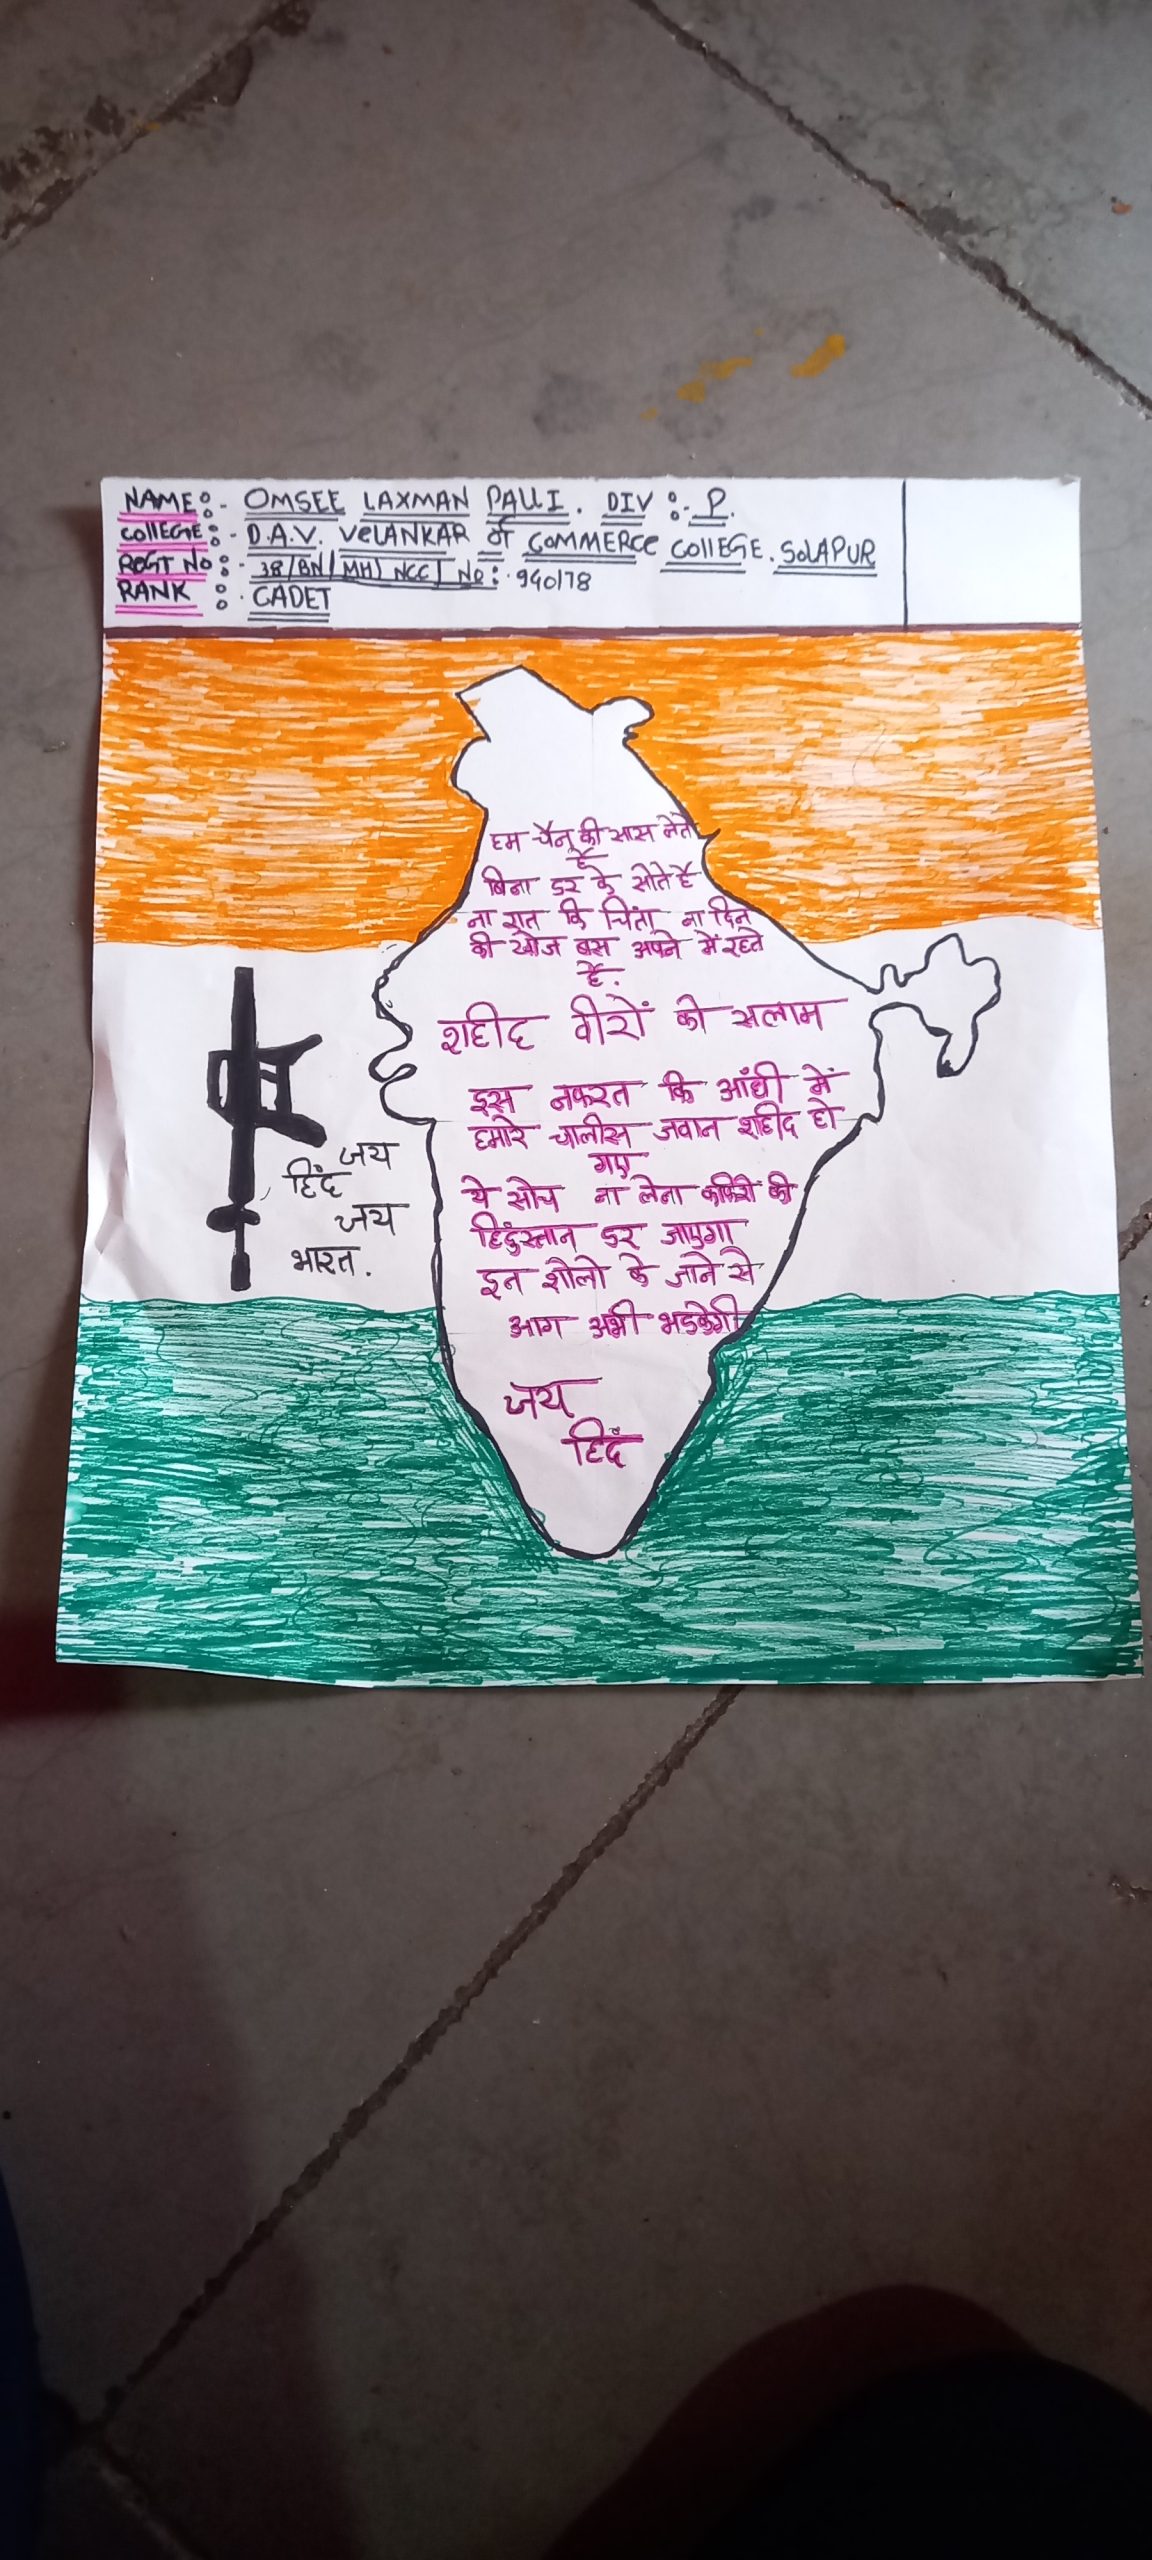 NAME:- OMSEE LAXMAN PALLI. DIV :- P.
COllEGE:- D.A.V. VeLANKAR of COMMERCE COllEGE. SOLAPUR
REGT NO:- 38/BN/(MH) NCC/ NO:- 940178
RANK :- CADET
हम चैन की सास लेते
है
बिना डर के सोते है
ना रात कि चिंता ना दिन
की खोज बस अपने में रहते
है.
शहीद वीरों को सलाम
इस नफरत कि आंधी में
हमारे चालीस जवान शहीद हो
गए
ये सोच ना लेना काफिरो की
हिंदुस्तान डर जाएगा
इन शोलो के जाने से
आग अभी भडकेगी
जय
हिंद
जय
हिंद
जय
भारत.